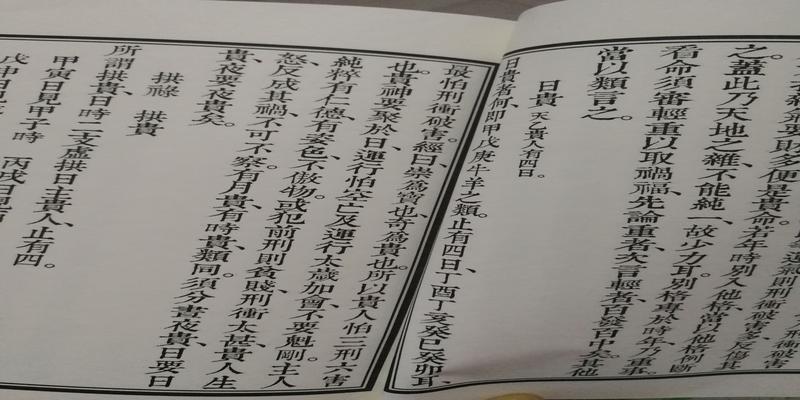 之蓋此乃天地之雜不能純一故少力耳別格專於時年力重事
看命須審輕重以取禍福先論重者次言輕者百發百中矣其他
當以類言之。
日貴 天乙貴人有四日。
日貴者何即甲戊庚牛羊之類。止有四日、丁酉丁亥癸巳癸卯耳、
最怕刑衝破害。經曰、崇為寶也、奇為貴也。所以貴人怕三刑六害
也。貴神要聚於日、運行怕空亡、及運行太歲加會不要魁剛。主人
純粹有仁德、有姿色、不傲物。或犯前刑則貧賤、刑衝太甚、貴人生
怒、反成其禍、不可不察。有月貴、有時貴、類同。須分晝夜貴、日要日
貴、夜要夜貴矣。
拱祿 拱貴
所謂拱貴、日時二支虛拱日主貴人、止有四。
甲寅日見甲子時